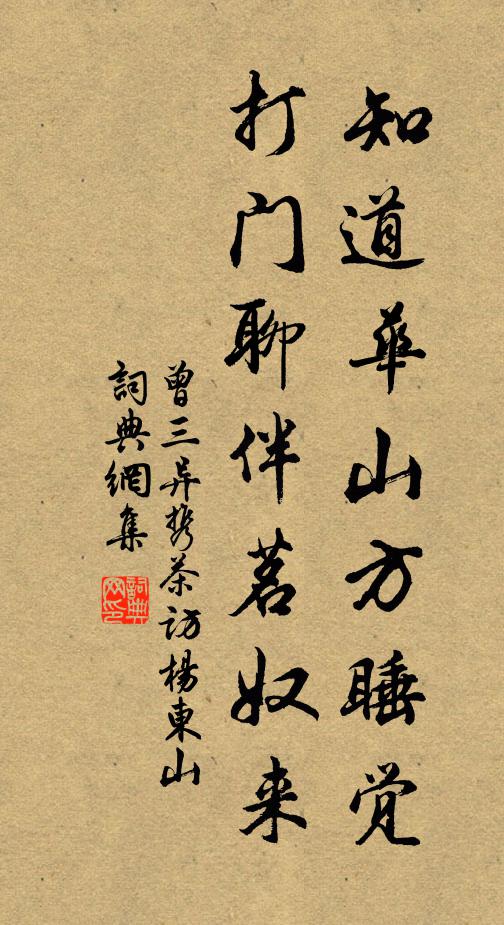 知道華山方睡觉
打门聊伴茗奴来
曾三异携茶访楊東山
詞典網集
詞典网印